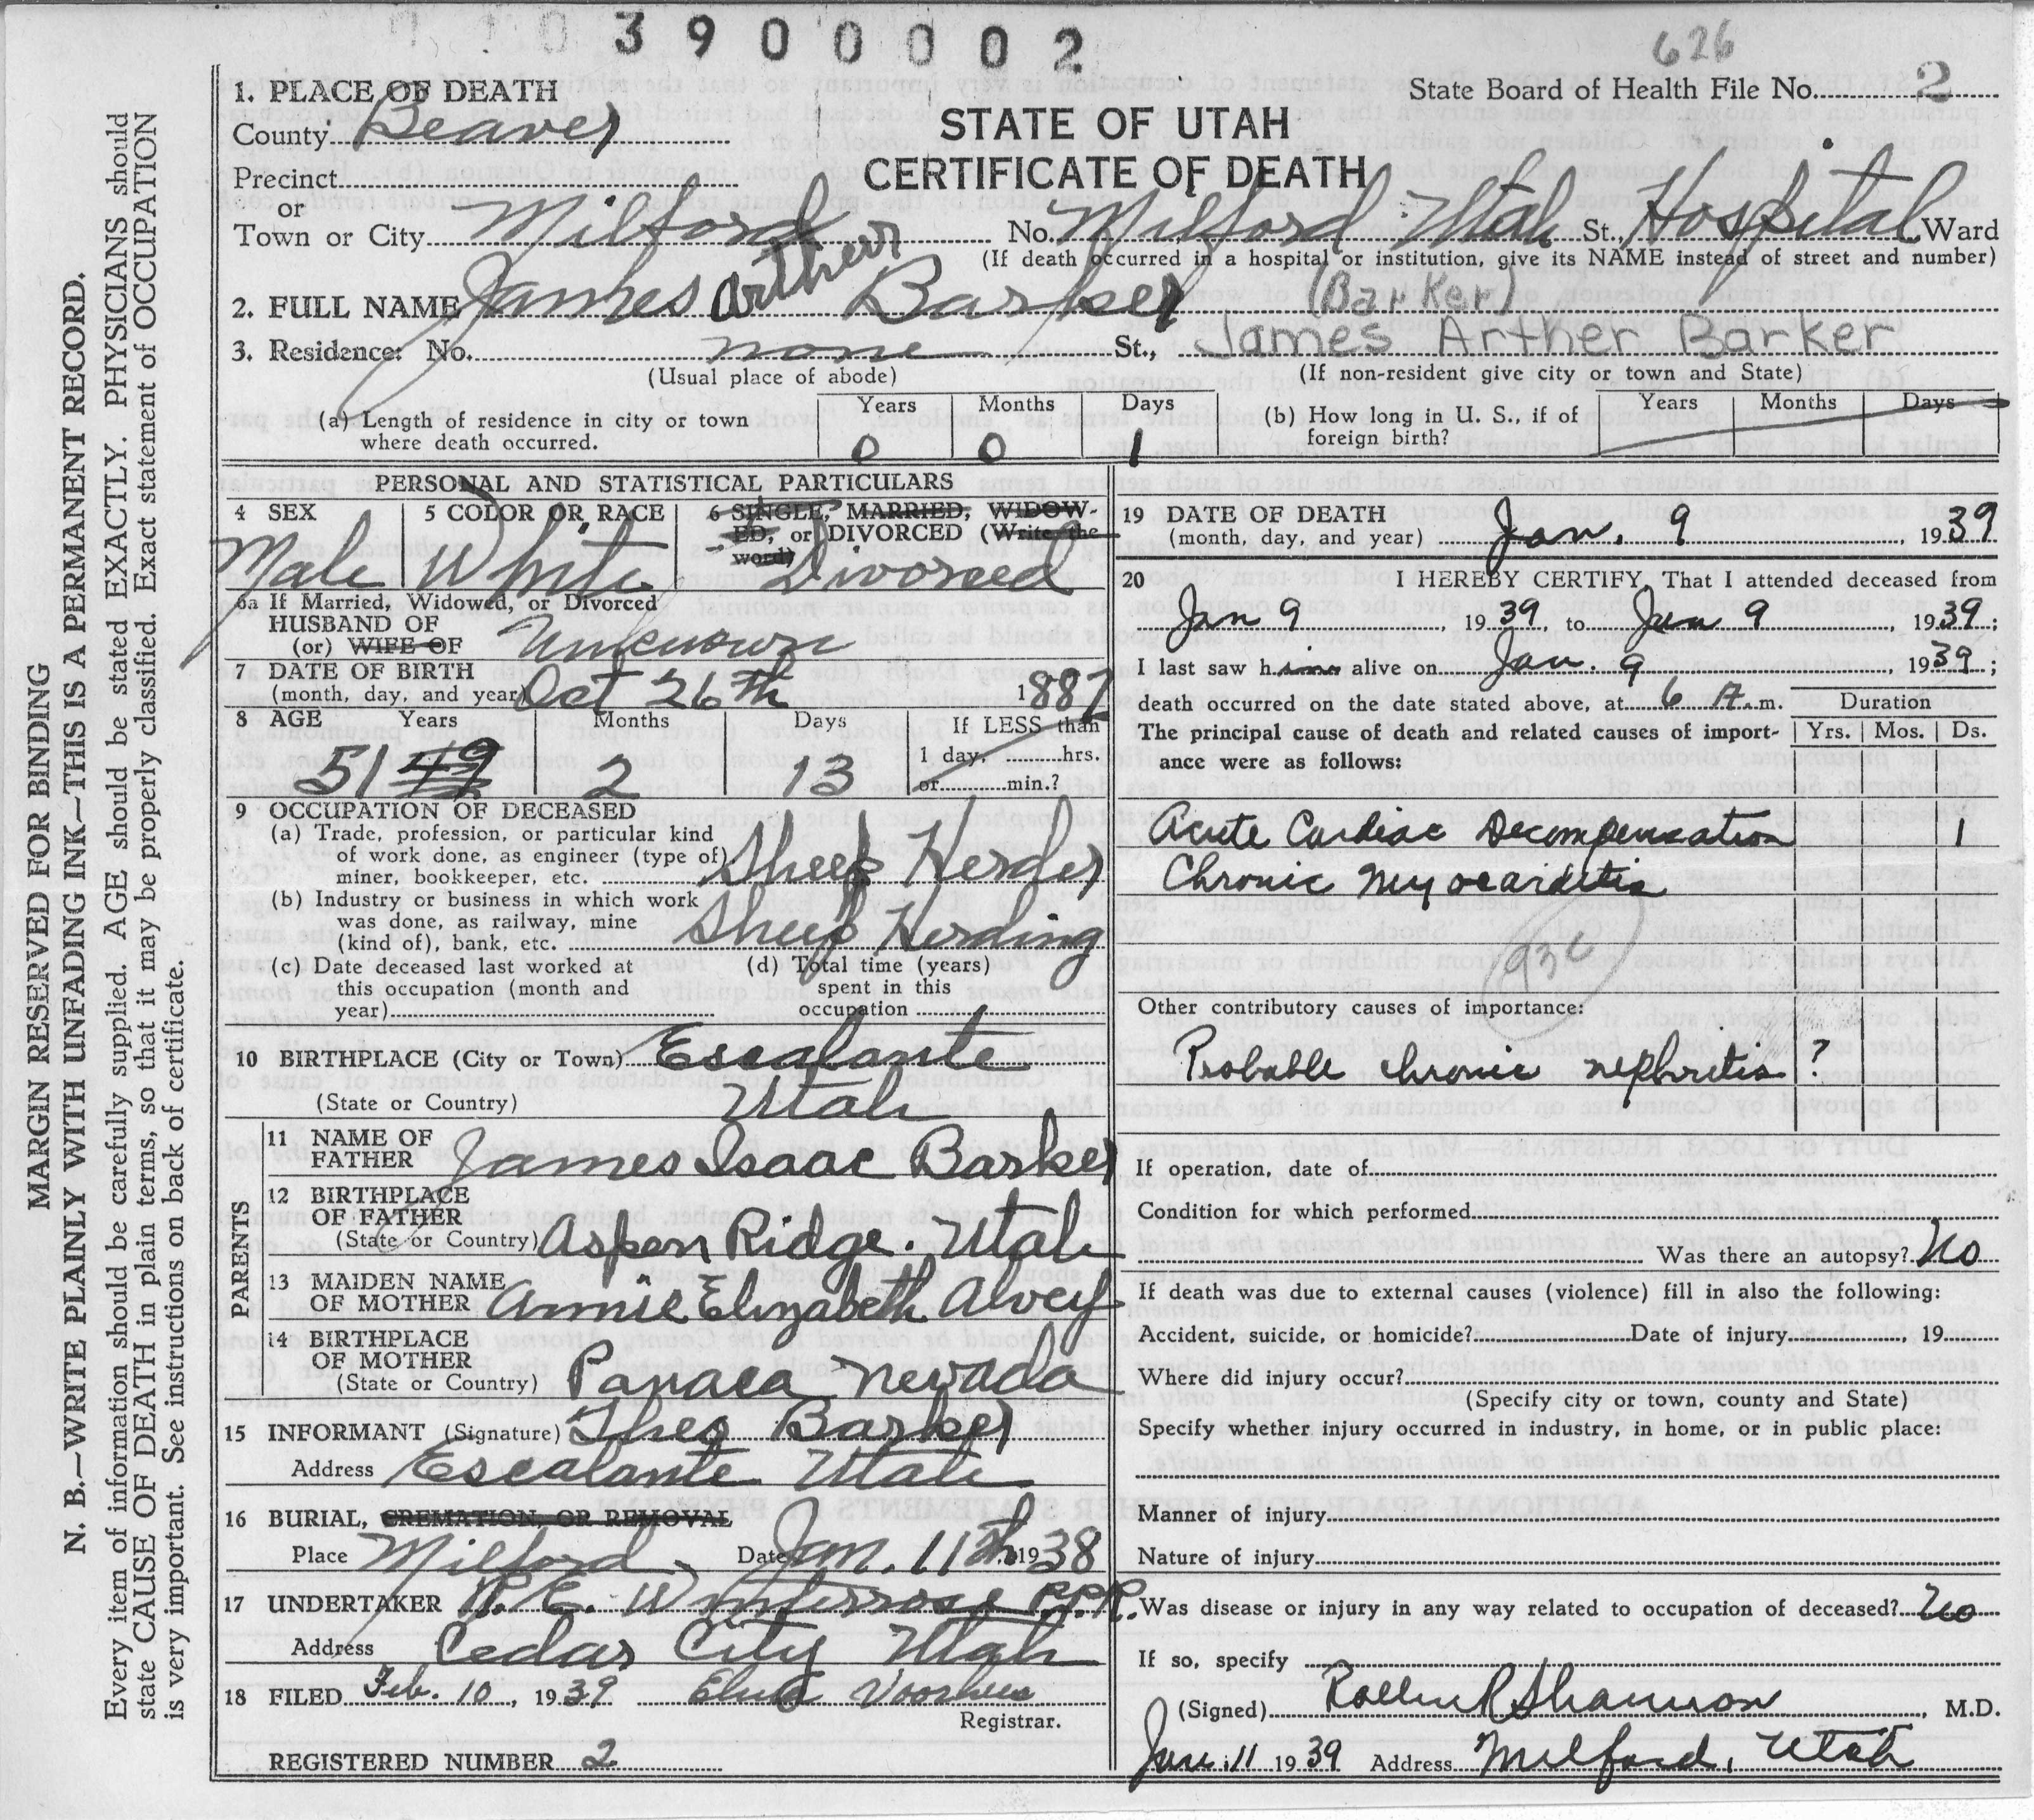 3900002
626
1. PLACE OF DEATH
State Board of Health File No. 2
County Beaver
STATE OF UTAH
CERTIFICATE OF DEATH
Precinct
or
Town or City Milford No. Milford Utah St., Hospital Ward
(If death occurred in a hospital or institution, give its NAME instead of street and number)
2. FULL NAME James Arther Barker (Barker)
3. Residence: No. none St., James Arther Barker
(Usual place of abode) (If non-resident give city or town and State)
(a) Length of residence in city or town where death occurred. Years 0 Months 0 Days 1
(b) How long in U. S., if of foreign birth? Years Months Days
PERSONAL AND STATISTICAL PARTICULARS
4 SEX Male
5 COLOR OR RACE White
6 SINGLE, MARRIED, WIDOW-
ED, or DIVORCED (Write the
word) Divorced
6a If Married, Widowed, or Divorced
HUSBAND OF
(or) WIFE OF Unknown
7 DATE OF BIRTH
(month, day, and year) Oct 26th 1887
8 AGE Years Months Days If LESS than
1 day, hrs.
51 2 13 or min.?
9 OCCUPATION OF DECEASED
(a) Trade, profession, or particular kind
of work done, as engineer (type of)
miner, bookkeeper, etc. Sheep Herder
(b) Industry or business in which work
was done, as railway, mine
(kind of), bank, etc. Sheep Herding
(c) Date deceased last worked at
this occupation (month and
year)
(d) Total time (years)
spent in this
occupation
10 BIRTHPLACE (City or Town) Escalante
(State or Country) Utah
PARENTS
11 NAME OF
FATHER James Isaac Barker
12 BIRTHPLACE
OF FATHER
(State or Country) Aspen Ridge. Utah
13 MAIDEN NAME
OF MOTHER Annie Elizabeth Alvey
14 BIRTHPLACE
OF MOTHER
(State or Country) Panaca Nevada
15 INFORMANT (Signature) Theo Barker
Address Escalante Utah
16 BURIAL, CREMATION, OR REMOVAL
Place Milford Date Jan. 11th 1938
17 UNDERTAKER Winterrose P.P.R.
Address Cedar City Utah
18 FILED Feb. 10, 1939 Voorhees
Registrar.
REGISTERED NUMBER 2
19 DATE OF DEATH
(month, day, and year) Jan. 9, 1939
20 I HEREBY CERTIFY, That I attended deceased from
Jan 9, 1939, to Jan 9, 1939;
I last saw him alive on Jan. 9 1939;
death occurred on the date stated above, at 6 A. m. Duration
The principal cause of death and related causes of import- Yrs. Mos. Ds.
ance were as follows:
Acute Cardiac Decompensation 1
Chronic Myocarditis
Other contributory causes of importance:
Probable chronic nephritis?
If operation, date of
Condition for which performed
Was there an autopsy? No
If death was due to external causes (violence) fill in also the following:
Accident, suicide, or homicide? Date of injury 19
Where did injury occur?
(Specify city or town, county and State)
Specify whether injury occurred in industry, in home, or in public place:
Manner of injury
Nature of injury
Was disease or injury in any way related to occupation of deceased? No
If so, specify
(Signed) Rollin R Shannon, M.D.
Jan. 11 1939 Address Milford, Utah
MARGIN RESERVED FOR BINDING
N. B.—WRITE PLAINLY WITH UNFADING INK—THIS IS A PERMANENT RECORD.
Every item of information should be carefully supplied. AGE should be stated EXACTLY. PHYSICIANS should
state CAUSE OF DEATH in plain terms, so that it may be properly classified. Exact statement of OCCUPATION
is very important. See instructions on back of certificate.